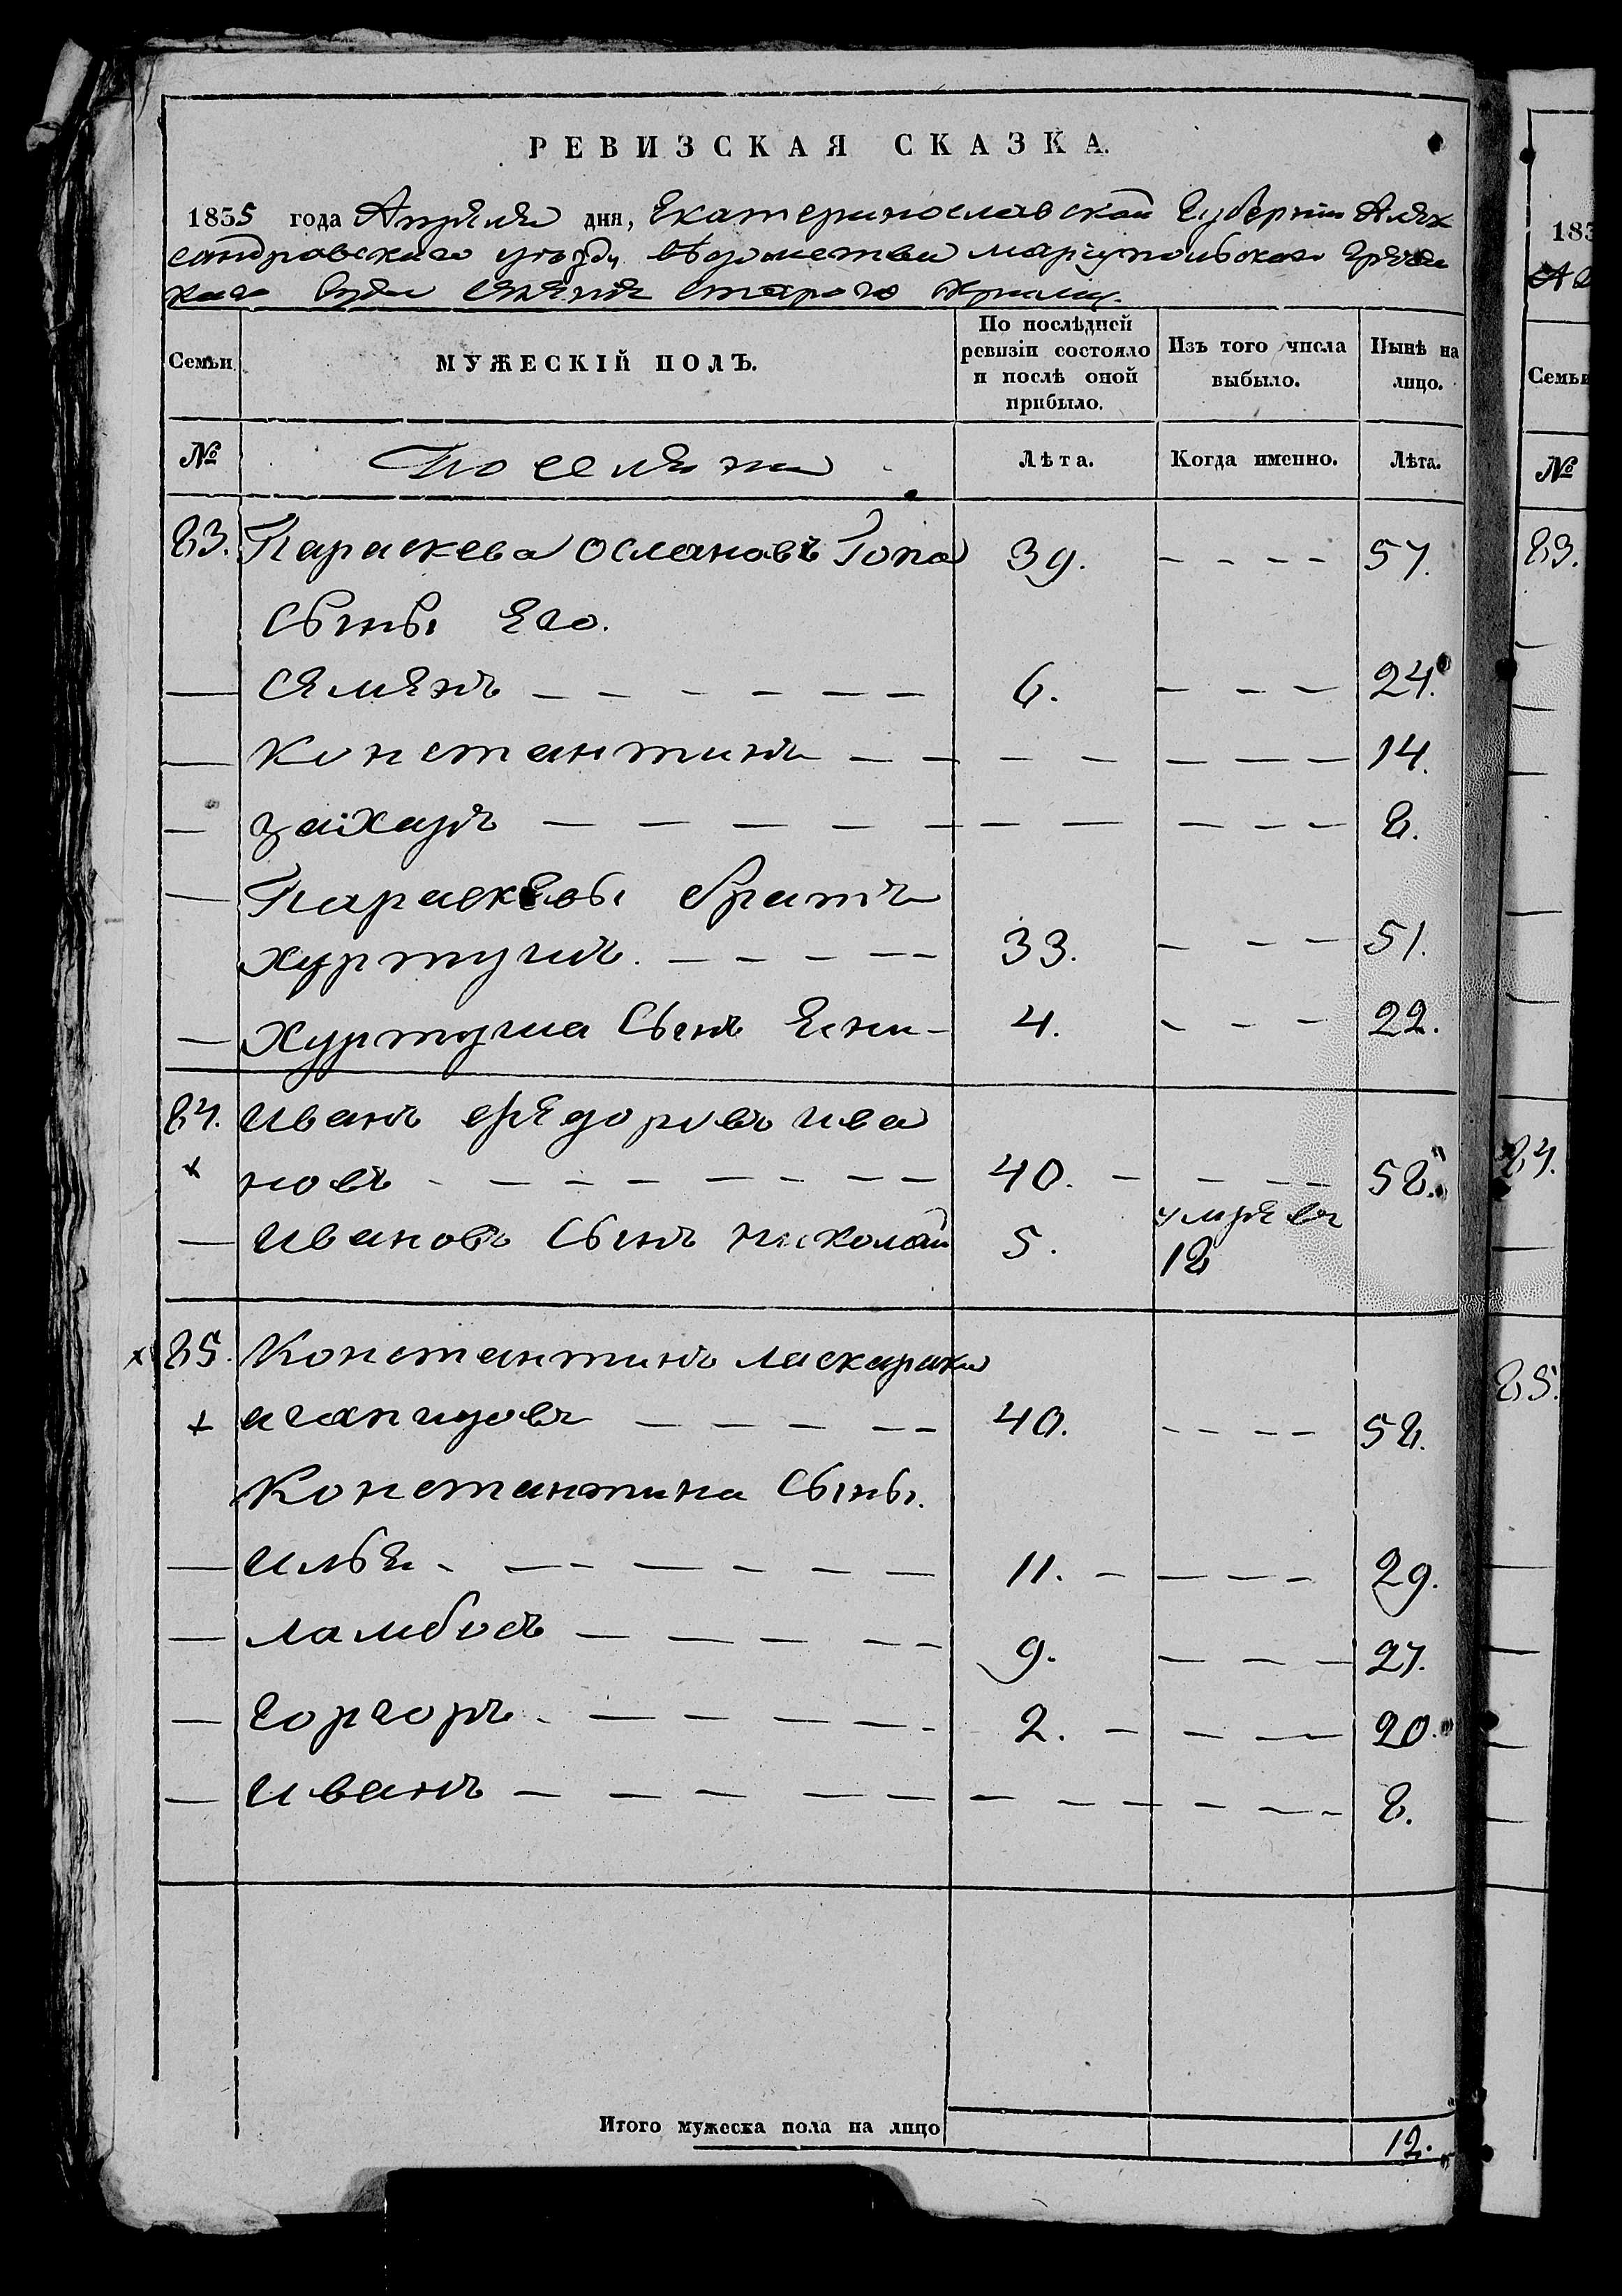 РЕВИЗСКАЯ СКАЗКА.
1835 года Апреля дня, Екатеринославской Губернии Алек
сандровского уезда ведомства мариупольского Гречес
каго Суда селения старого Крыма.
Семьи МУЖЕСКІЙ ПОЛЪ. По послѣдней ревизіи состояло и послѣ оной прибыло. Изъ того числа выбыло. Нынѣ на лицо.
№ Поселяни Лѣта. Когда именно. Лѣта.
83. Параскева Ослановъ Топа 39. - - - - 57.
Сыны Его.
— Семенъ - - - - - - 6. - - - 24.
— Константинъ - - - - - - - 14.
— Захаръ - - - - - - - - - 8.
— Параскевы братъ
Хуртугшъ. - - - - - 33. - - - 51.
— Хуртугша Сынъ Ени - 4. - - - 22.
84. Иванъ Фёдоровъ ива
× новъ - - - - - - - 40. - - - - 58.
— Ивановъ Сынъ николай 5. умре въ 18
× 85. Константинъ ласкараки
+ аганицовъ - - - - - 40. - - - - 58.
Константина Сыны.
— Илья - - - - - - - 11. - - - - 29.
— Ламбосъ - - - - - 9. - - - 27.
— Горгоръ - - - - - - 2. - - - 20.
— Иванъ - - - - - - - - - - - 8.
Итого мужеска пола на лицо 12.
183
№
Семьи
83.
84.
85.